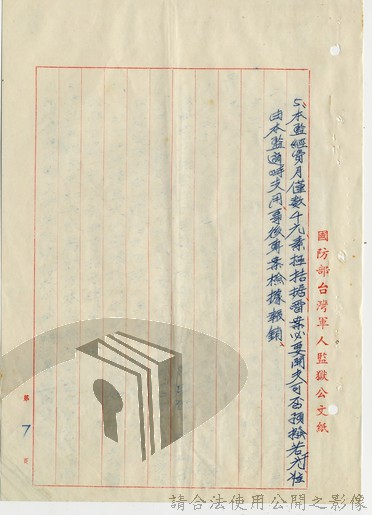 國防部台灣軍人監獄公文紙
5、本監經費月僅數千元素極拮据審案必要開支可否預撥若干元在
由本監適時支用事後專案檢據報銷
第7頁
請合法使用公開之影像